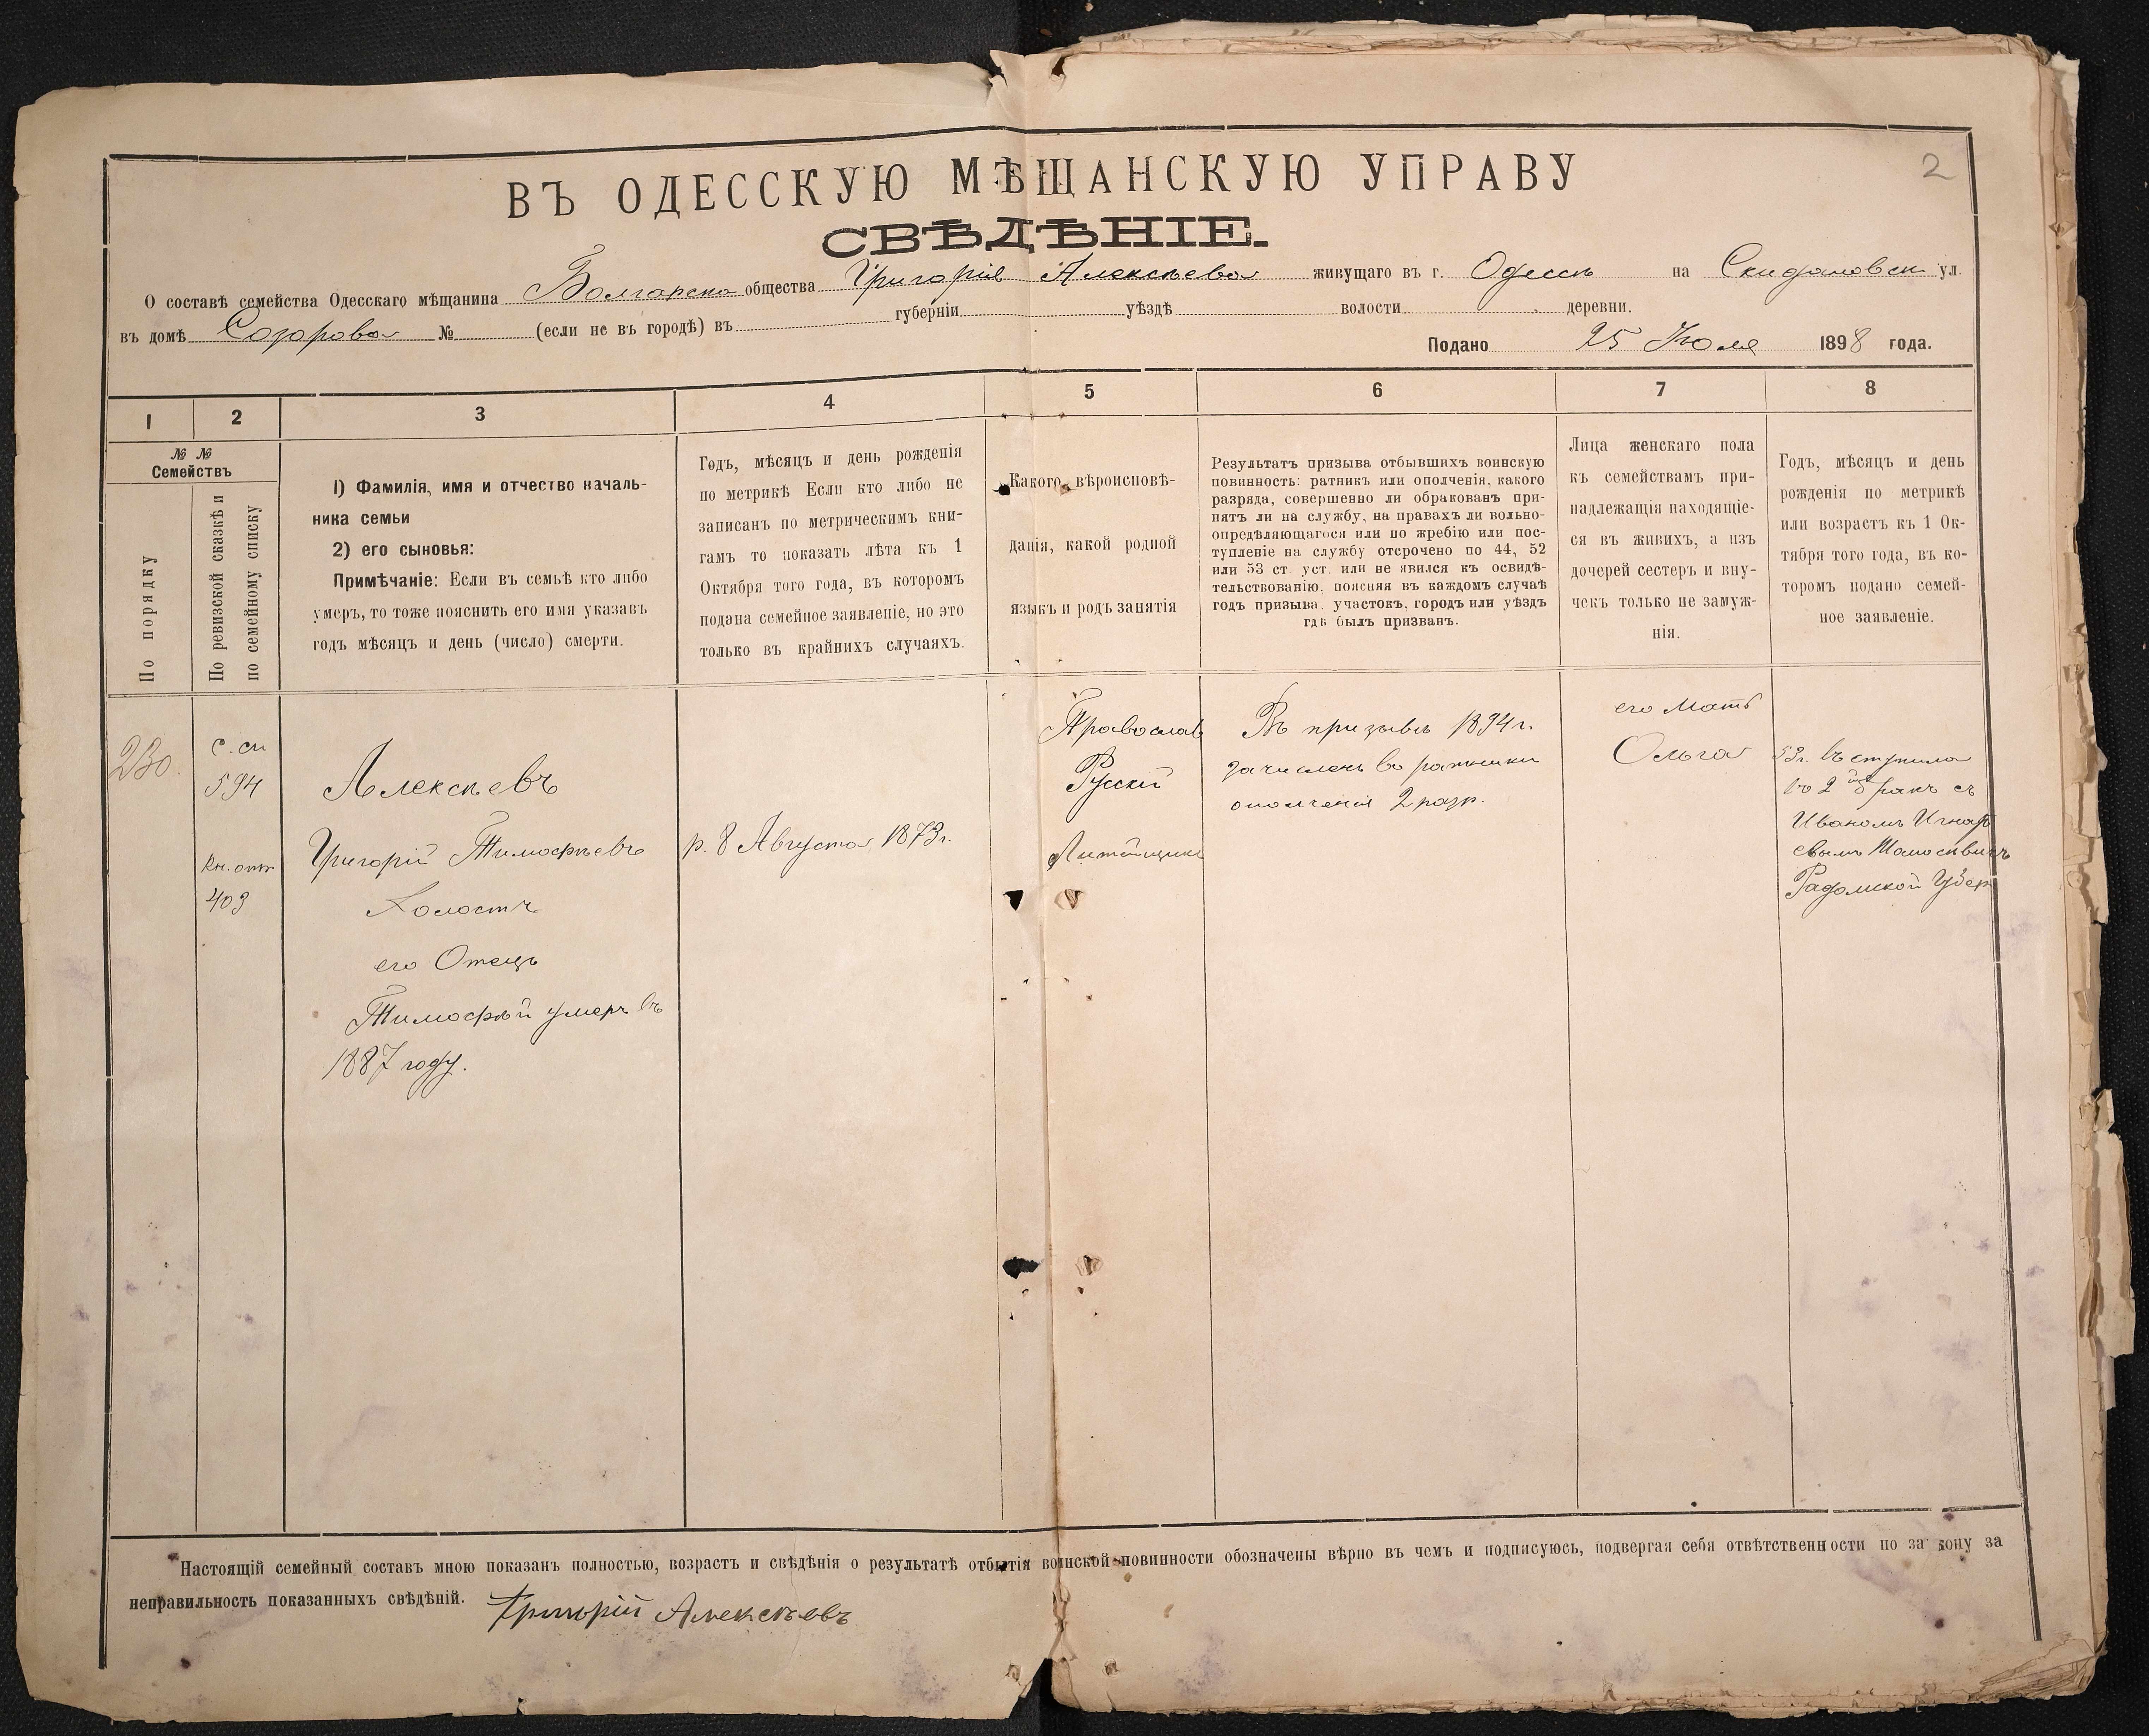 2
ВЪ ОДЕССКУЮ МѢЩАНСКУЮ УПРАВУ
СВѢДѢНІЕ.
О составѣ семейства Одесскаго мѣщанина Болгарско общества Григорія Алексѣева живущаго въ г. Одессѣ на Скидановск ул.
въ домѣ № (если не въ городѣ) въ губерніи уѣздѣ волости деревни.
Подано 25 Іюля 1898 года.
1 2 3 4 5 6 7 8
№ №
Семействъ
По порядку
По ревизской сказкѣ и
по семейному списку
1) Фамилія, имя и отчество началь-
ника семьи
2) его сыновья:
Примѣчаніе: Если въ семьѣ кто либо
умеръ, то тоже пояснить его имя указавъ
годъ мѣсяцъ и день (число) смерти.
Годъ, мѣсяцъ и день рожденія
по метрикѣ Если кто либо не
записанъ по метрическимъ кни-
гамъ то показать лѣта къ 1
Октября того года, въ которомъ
подана семейное заявленіе, но это
только въ крайнихъ случаяхъ.
Какого вѣроисповѣ-
данія, какой родной
языкъ и родъ занятія
Результатъ призыва отбывшихъ воинскую
повинность: ратникъ или ополченія, какого
разряда, совершенно ли обракованъ при-
нятъ ли на службу, на правахъ ли вольно-
опредѣляющагося или по жребію или пос-
тупленіе на службу отсрочено по 44, 52
или 53 ст. уст. или не явился къ освидѣ-
тельствованію, поясняя въ каждомъ случаѣ
годъ призыва, участокъ, городъ или уѣздъ
гдѣ былъ призванъ.
Лица женскаго пола
къ семействамъ при-
надлежащія находящіе-
ся въ живихъ, а изъ
дочерей сестеръ и вну-
чекъ только не замуж-
нія.
Годъ, мѣсяцъ и день
рожденія по метрикѣ
или возрастъ къ 1 Ок-
тября того года, въ ко-
торомъ подано семей-
ное заявленіе.
230.
с. сп
594
Кн. отк
403
Алексѣевъ
Григорій Тимофѣевъ
Холостъ
его Отецъ
Тимофѣй умеръ въ
1887 году.
р. 8 Августа 1873 г.
Православ
Русскій
Литейщикъ
Въ призывъ 1894 г.
зачисленъ въ ратники
ополченія 2 разр.
его Мать
Ольга
53 г. вступила
во 2й бракъ съ
Иваномъ Игнать
евымъ
Радомской Губер
Настоящій семейный составъ мною показанъ полностью, возрастъ и свѣдѣнія о результатѣ отбытія воинской повинности обозначены вѣрно въ чемъ и подписуюсь, подвергая себя отвѣтственности по закону за
неправильность показанныхъ свѣдѣній. Григорій Алексѣевъ